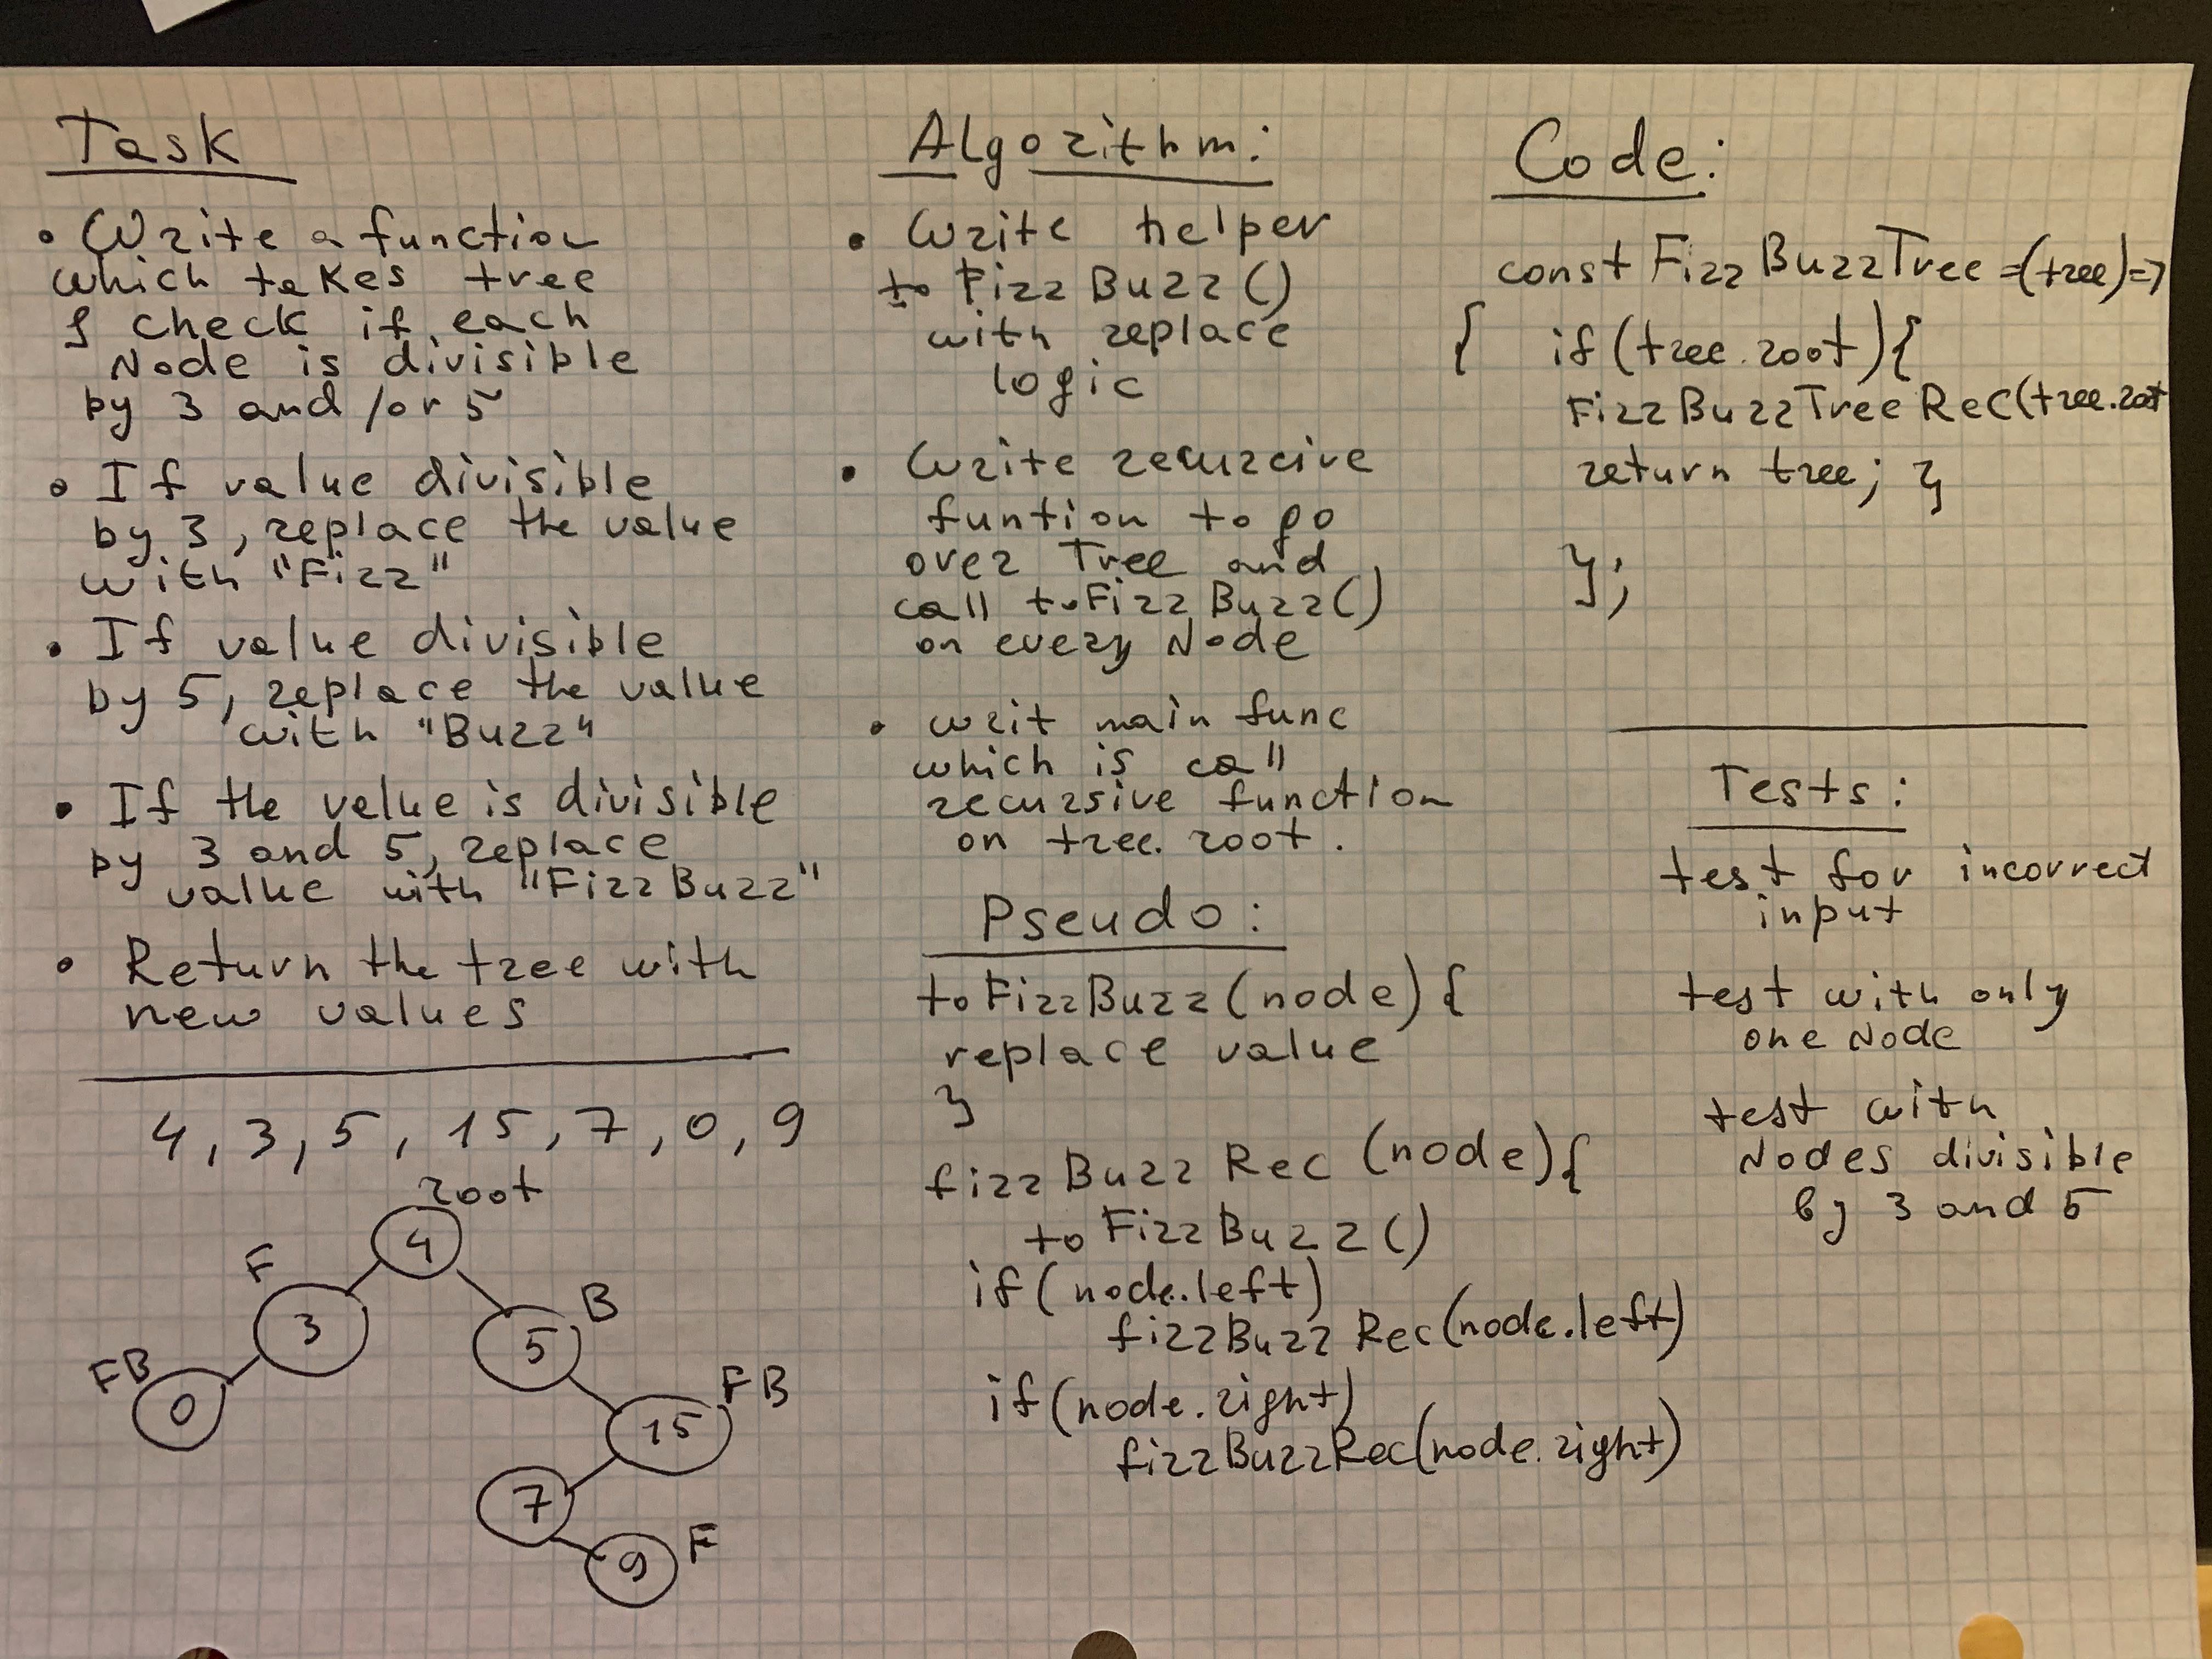 Task
• Write a function
which takes tree
& check if each
Node is divisible
by 3 and/or 5
• If value divisible
by 3, replace the value
with "Fizz"
• If value divisible
by 5, replace the value
with "Buzz"
• If the value is divisible
by 3 and 5, replace
value with "FizzBuzz"
• Return the tree with
new values
4, 3, 5, 15, 7, 0, 9
root
4
F
3
B
5
FB
0
FB
15
7
9
F
Algorithm:
• Write helper
toFizzBuzz()
with replace
logic
• Write recurcive
funtion to go
over Tree and
call toFizzBuzz()
on every Node
• writ main func
which is call
recursive function
on tree.root.
Pseudo:
toFizzBuzz(node){
replace value
}
fizzBuzzRec(node){
toFizzBuzz()
if(node.left)
fizzBuzzRec(node.left)
if(node.right)
fizzBuzzRec(node.right)
Code:
const FizzBuzzTree=(tree)=>
{ if(tree.root){
FizzBuzzTreeRec(tree.root
return tree; }
};
Tests:
test for incorrect
input
test with only
one Node
test with
Nodes divisible
by 3 and 5